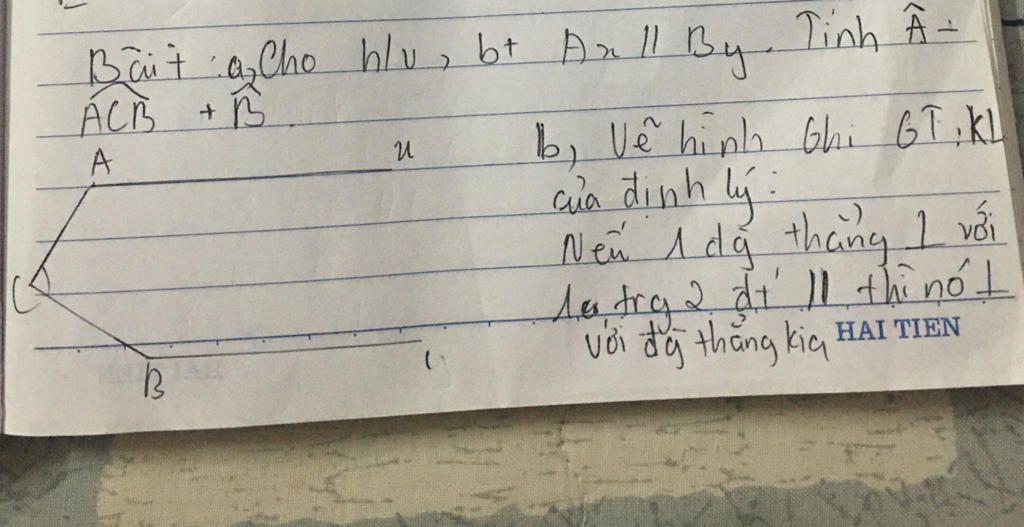 Bài 7: a, Cho h/v, bt Ax // By. Tính Â +
ACB + B̂.
A x
b, Vẽ hình Ghi GT, KL
của định lý:
Nếu 1 đg thẳng ⊥ với
C
1 trg 2 đt // thì nó ⊥
với đg thẳng kia HAI TIEN
B